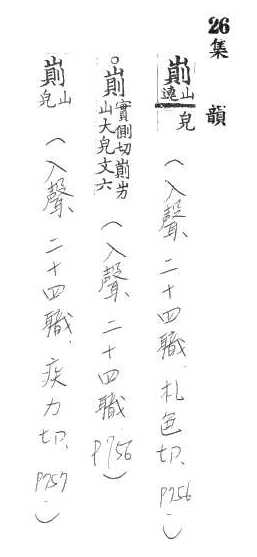 26 集韻
崱山遶皃（入聲、二十四職、札色切、P756）
○崱實側切崱屴山大皃文六（入聲、二十四職 P756）
崱山皃（入聲、二十四職、疾力切、P757）